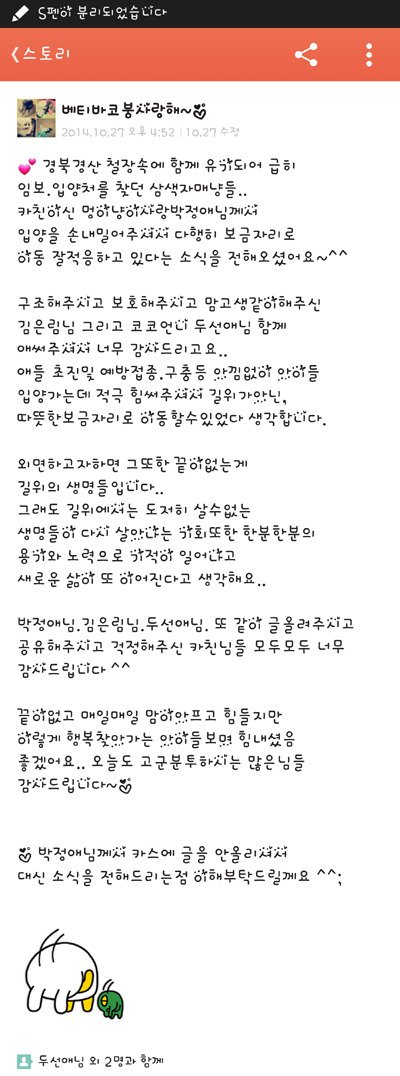 S펜이 분리되었습니다
스토리
베티바코봉사랑해~
2014.10.27 오후 4:52 | 10.27 수정
💕 경북경산 철장속에 함께 유기되어 급히
임보.입양처를 찾던 삼색자매냥들..
카친이신 멍이냥이사랑박정애님께서
입양을 손내밀어주셔서 다행히 보금자리로
이동 잘적응하고 있다는 소식을 전해오셨어요~^^
구조해주시고 보호해주시고 맘고생같이해주신
김은림님 그리고 코코언니 두선애님 함께
애써주셔서 너무 감사드리고요..
애들 초진및 예방접종.구충등 아낌없이 아이들
입양가는데 적극 힘써주셔서 길위가아닌,
따뜻한보금자리로 이동할수있었다 생각합니다.
외면하고자하면 그또한 끝이없는게
길위의 생명들입니다..
그래도 길위에서는 도저히 살수없는
생명들이 다시 살아나는 기회또한 한분한분의
용기와 노력으로 기적이 일어나고
새로운 삶이 또 이어진다고 생각해요..
박정애님.김은림님.두선애님. 또 같이 글올려주시고
공유해주시고 걱정해주신 카친님들 모두모두 너무
감사드립니다 ^^
끝이없고 매일매일 맘이아프고 힘들지만
이렇게 행복찾아가는 아이들보며 힘내셨음
좋겠어요.. 오늘도 고군분투하시는 많은님들
감사드립니다~
박정애님께서 카스에 글을 안올리셔서
대신 소식을 전해드리는점 이해부탁드릴께요 ^^;
두선애님 외 2명과 함께